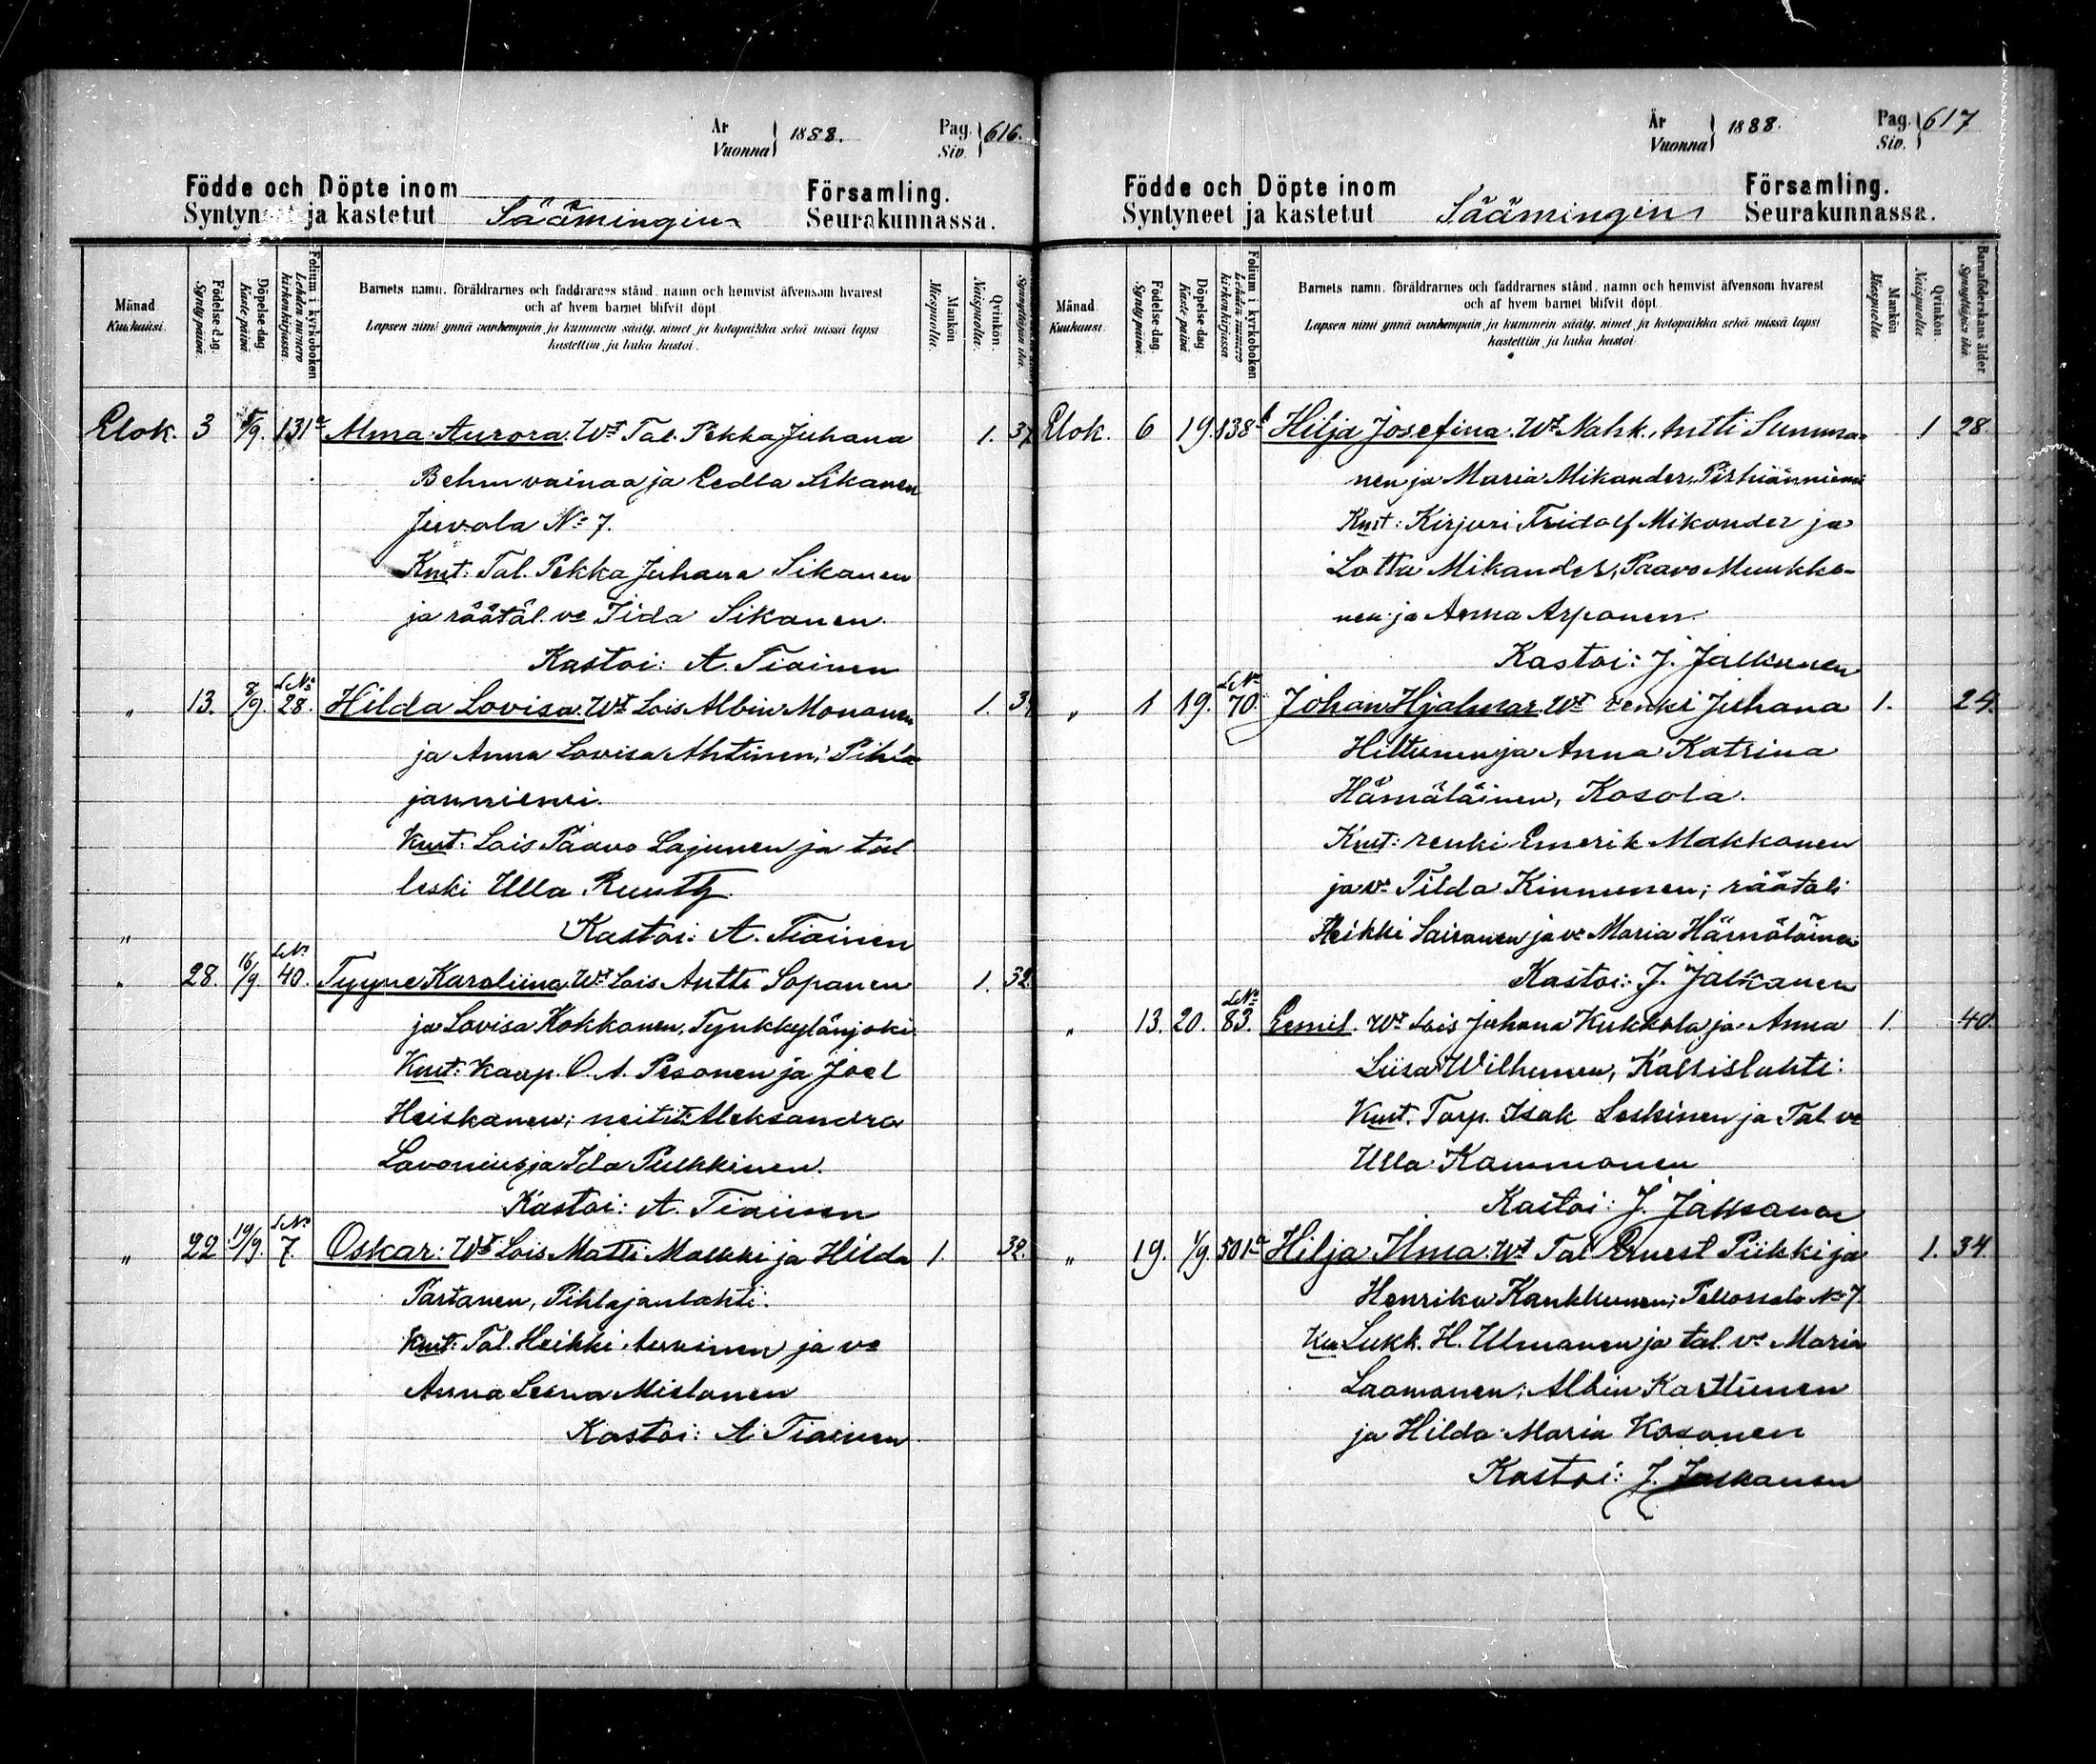 År
Vuonna } 1888.
Pag.
Siv. } 616.
Födde och Döpte inom
Syntyneet ja kastetut Säämingin
Församling.
Seurakunnassa.
Månad
Kuukausi.
Födelse-dag.
Synty-päivä.
Döpelse-dag
Kaste-päivä
Folium i kyrkoboken
Lehden numero
kirkonkirjassa.
Barnets namn, föräldrarnes och faddrarnes stånd, namn och hemvist äfvensom hvarest
och af hvem barnet blifvit döpt.
Lapsen nimi ynnä vanhempain ja kummein sääty, nimet ja kotopaikka sekä missä lapsi
kastettiin ja kuka kastoi.
Mankön
Miespuolia.
Qvinkön.
Naispuolia.
Elok. 3 5/9. 131 a Alma Aurora. Wt Tal. Pekka Juhana 1. 37
Behm vainaa ja Eedla Sikanen
Juvola No 7.
Kmt: Tal. Pekka Juhana Sikanen
ja räätäl. vo Iida Sikanen.
Kastoi: A. Tiainen
" 13. 8/9. LNo 28. Hilda Lovisa. Wt Lois Albin Monanen 1.
ja Anna Lovisa Ahtinen, Pihla-
janniemi.
Kmt: Lois Paavo Lajunen ja tal
leski Ulla Runth
Kastoi: A. Tiainen
" 28. 16/9. LNo 40. Tyyne Karoliina. Wt Lois Antti Sopanen 1. 32.
ja Lovisa Kokkonen, Tynkkylänjoki.
Kmt: Kaup. O. A. Pesonen ja Joel
Heiskanen; neitit: Aleksandra
Lavonius ja Ida Pulkkinen.
Kastoi: A. Tiainen
" 22 19/9. LNo 7. Oskar: Wt Lois Matti Malkki ja Hilda 1. 32.
Partanen, Pihlajanlahti.
Kmt: Tal. Heikki Auvinen ja vo
Anna Leena Mielonen
Kastoi: A. Tiainen
År
Vuonna } 1888.
Pag.
Siv. } 617
Födde och Döpte inom
Syntyneet ja kastetut Säämingin
Församling.
Seurakunnassa.
Månad
Kuukausi.
Födelse-dag.
Synty-päivä.
Döpelse-dag
Kaste-päivä
Folium i kyrkoboken
Lehden numero
kirkonkirjassa
Barnets namn, föräldrarnes och faddrarnes stånd, namn och hemvist äfvensom hvarest
och af hvem barnet blifvit döpt.
Lapsen nimi ynnä vanhempain ja kummein sääty, nimet ja kotopaikka sekä missä lapsi
kastettiin ja kuka kastoi
Mankön
Miespuolia
Qvinkön.
Naispuolia
Barnaföderskans ålder
Synnyttäjän ikä.
Elok. 6 19. 838 b Hilja Josefina. Wt Nahk. Antti Summa- 1 28.
nen ja Maria Mikander, Pirhiänniemi
Kmt: Kirjuri Fridolf Mikander ja
Lotta Mikander, Paavo Muukko-
nen ja Anna Arponen.
Kastoi: J. Jalkanen
" 1 19. LNo 70. Johan Hjalmar Wt renki Juhana 1. 24.
Hiltunen ja Anna Katrina
Hämäläinen, Kosola.
Kmt: renki Emerik Makkonen
ja vo Tilda Kinnunen; räätali
Heikki Sairanen ja vo Maria Hämäläinen
Kastoi: J. Jalkanen
" 13. 20. LNo 83. Eemil. Wt Lois Juhana Kukkola ja Anna 1. 40.
Liisa Wilhunen, Kallislahti:
Kmt. Torp. Isak Leskinen ja Tal vo
Ulla Kammonen
Kastoi: J. Jalkanen
" 19. 1/9. 501 a Hilja Ilma. Wt Tal Ernest Piikki ja 1. 34.
Henrika Kankkunen, Pellossalo No 7
Ku Lukk. H. Ulmanen ja tal. vo Maria
Laamanen; Albin Karttunen
ja Hilda Maria Kosonen
Kastoi: J. Jalkanen